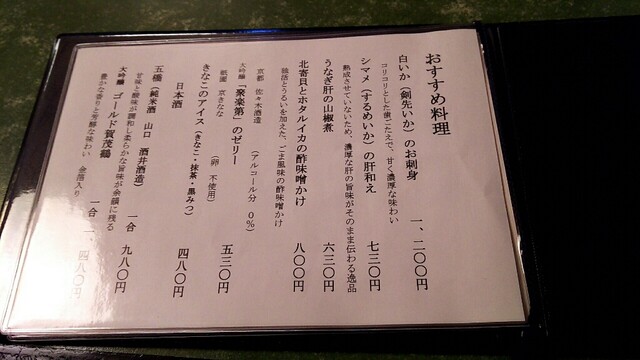 おすすめ料理
白いか(剣先いか)のお刺身 一、二〇〇円
コリコリとした歯ごたえで、甘く濃厚な味わい
シマメ(するめいか)の肝和え 七三〇円
熟成させていないため、濃厚な肝の旨味がそのまま伝わる逸品
うなぎ肝の山椒煮 六三〇円
北寄貝とホタルイカの酢味噌かけ 八〇〇円
独活とうるいを加えた、ごま風味の酢味噌かけ
京都 佐々木酒造 (アルコール分 0%)
大吟醸「聚楽第」のゼリー 五三〇円
祇園 京きなな (卵 不使用)
きなこのアイス(きなこ・抹茶・黒みつ) 四八〇円
日本酒
五橋(純米酒 山口 酒井酒造) 一合 九八〇円
甘味と酸味が調和し柔らかな旨味が余韻に残る
大吟醸 ゴールド賀茂鶴 一合 一、四八〇円
豊かな香りと芳醇な味わい 金箔入り